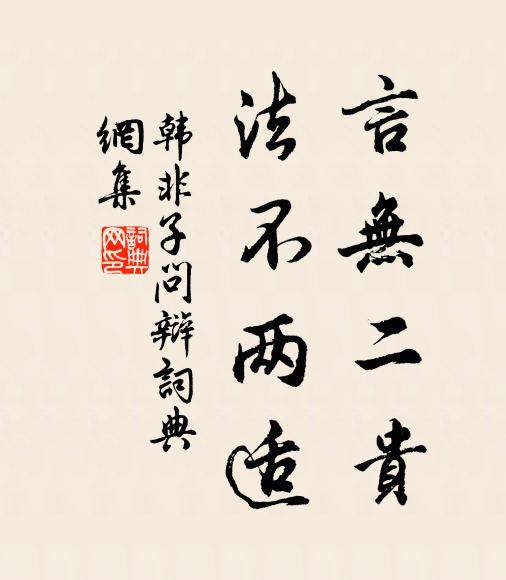 言無二貴
法不两适
韩非子问辩詞典
網集
詞典
网印